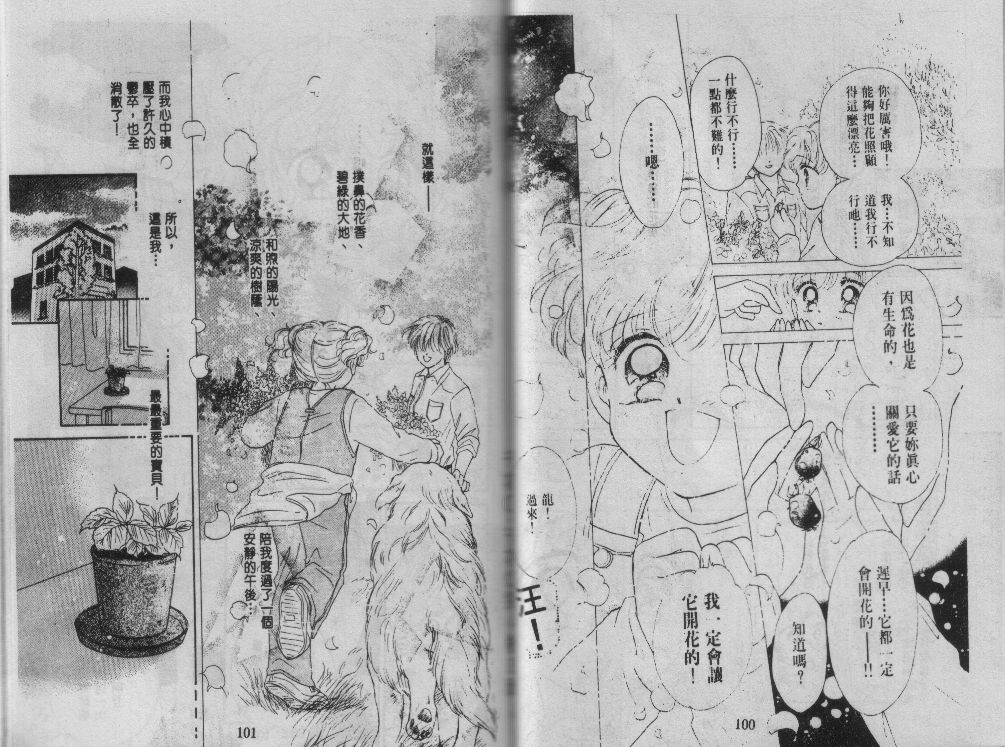 你好厲害哦！
能夠把花照顧
得這麼漂亮…
我…不知
道我行不
行吔……
什麼行不行……
一點都不難的！
………
嗯………
因為花也是
有生命的，
只要妳真心
關愛它的話
………
遲早…它都一定
會開花的——!!
知道嗎？
我一定會讓
它開花的！
龍！
過來！
汪！
100
就這樣——
撲鼻的花香、
碧綠的大地、
和煦的陽光、
涼爽的樹蔭、
陪我度過了一個
安靜的午後…
而我心中積
壓了許久的
鬱卒，也全
消散了！
所以，
這是我…
最最重要的寶貝！
101